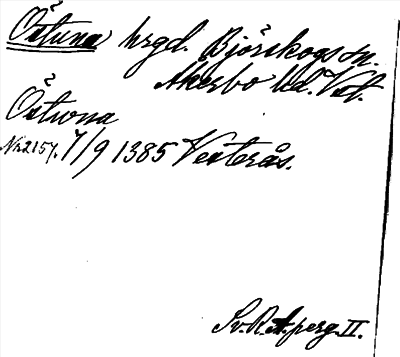 Östuna hrgd. Björskogs sn.
Åkerbo hd. Vstm.
Östuna
Nr 2157. 7/9 1385 Vesterås.
Sv. R. A. perg. II.